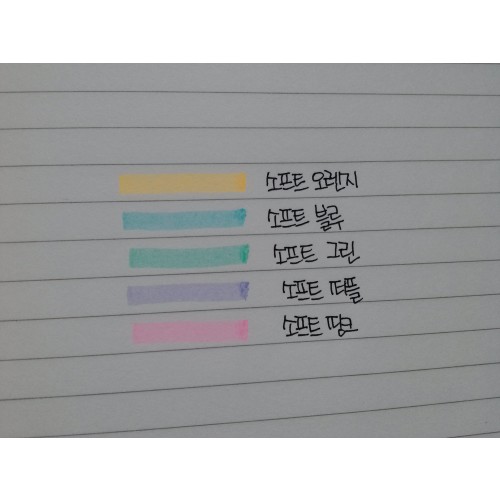 소프트 오렌지
소프트 블루
소프트 그린
소프트 퍼플
소프트 핑크